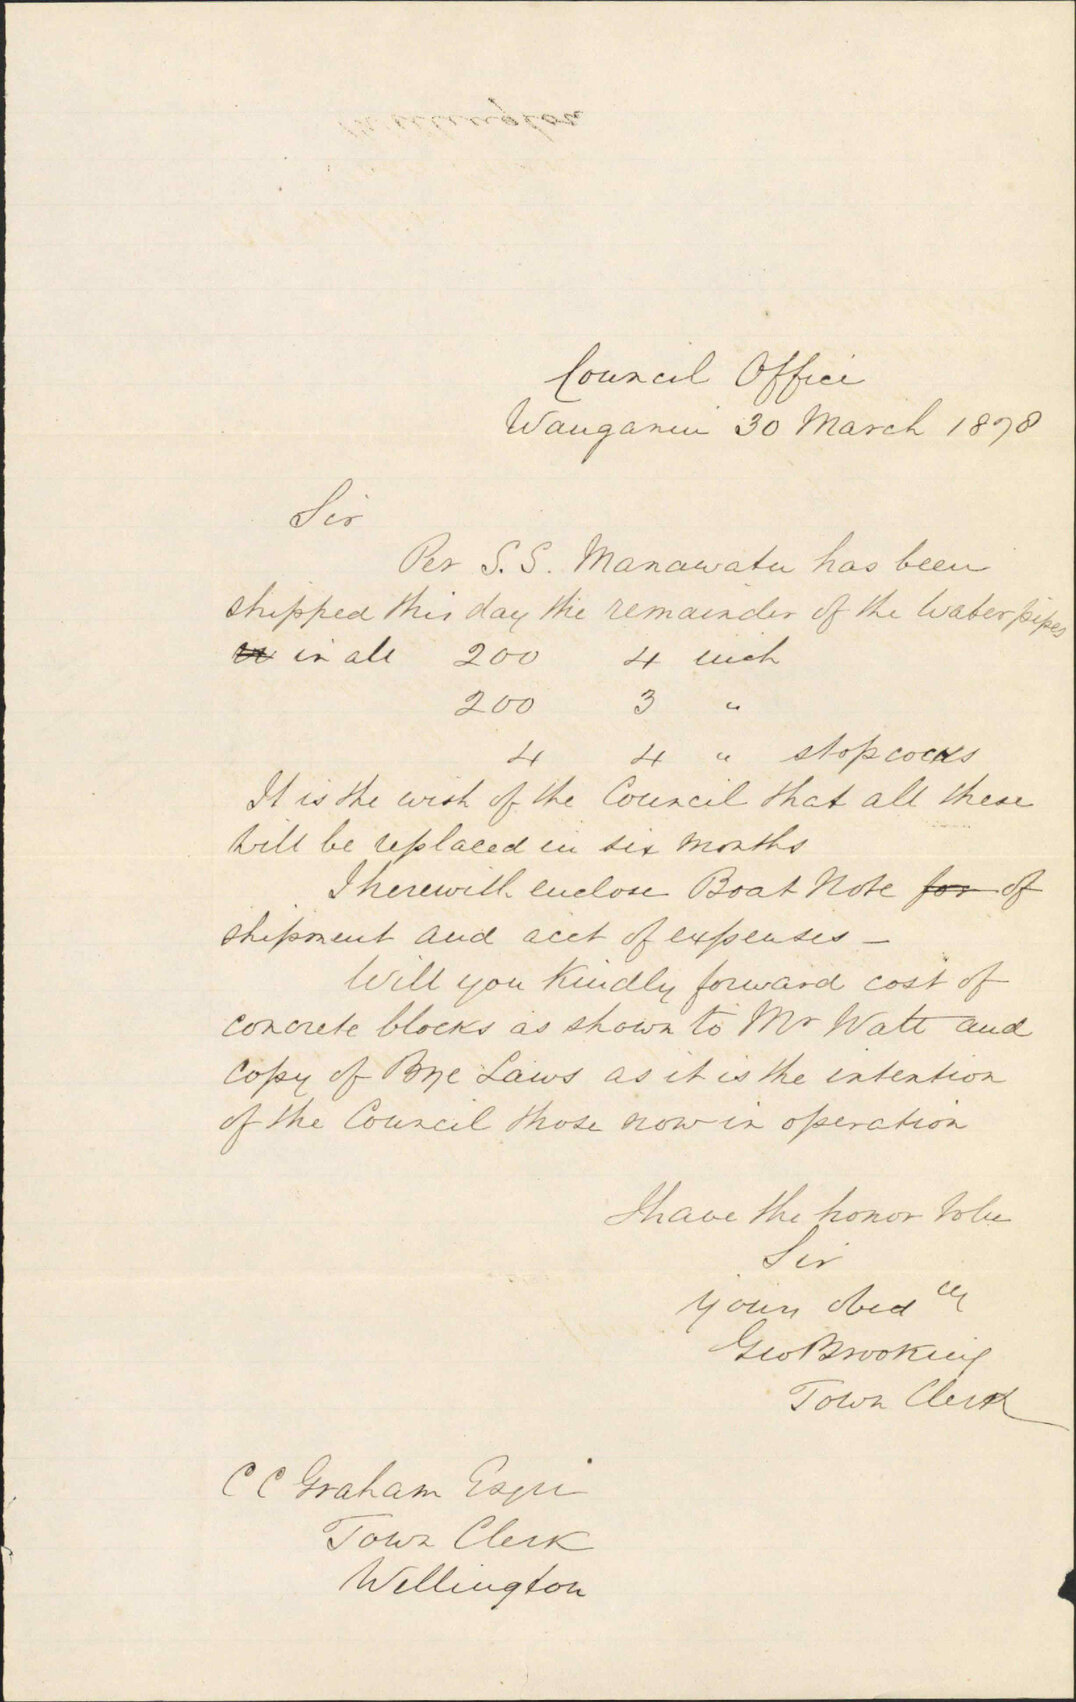 Council Office
Wanganui 30 March 1878
Sir
Per S.S. Manawatu has been
shipped this day the remainder of the Water pipes
in all 200 4 inch
200 3 "
4 4 " stopcocks
It is the wish of the Council that all these
will be replaced in six months
I herewith enclose Boat Note for of
shipment and acct of expenses —
Will you Kindly forward cost of
concrete blocks as shown to Mr Watt and
Copy of Bye Laws as it is the intention
of the Council those now in operation
I have the honor to be
Sir
Your obed
Geo Brooking
Town Clerk
C C Graham Esqre
Town Clerk
Wellington